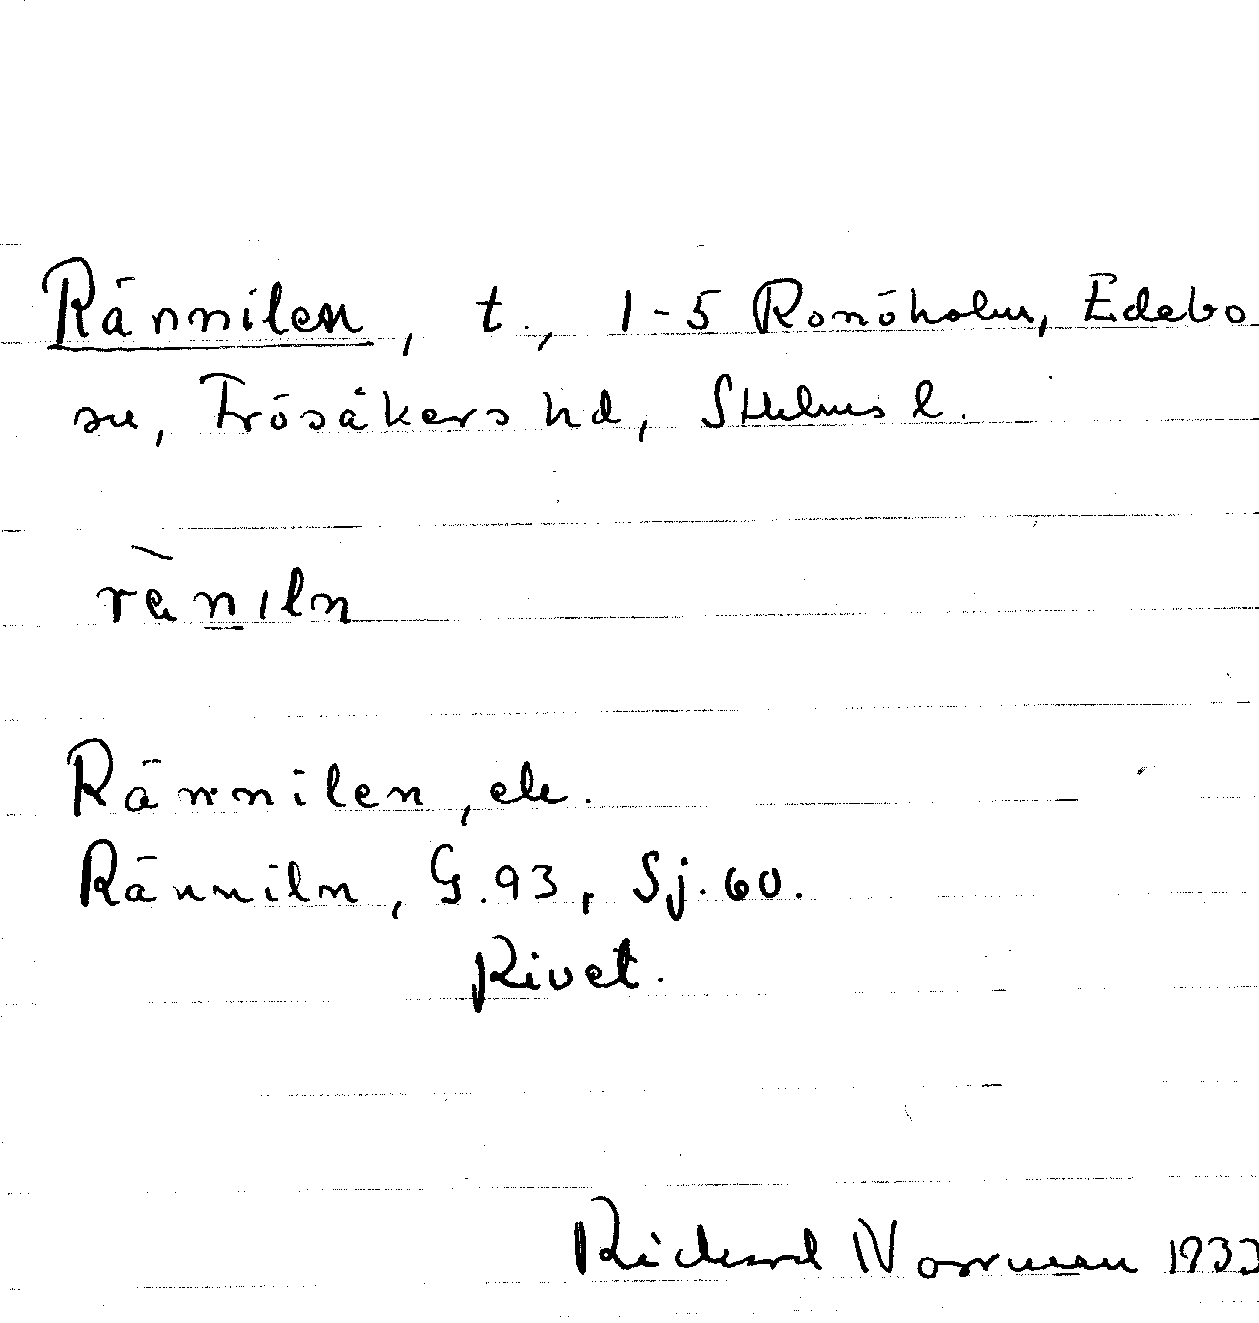 Rännilen, t., 1-5 Ronöholm, Edebo
sn, Frösåkers hd, Sthlms l.
rä̀n̲ıln
Rännilen, ek.
Ränniln, G.93, Sj.60.
Rivet.
Rickard Norrman 1933